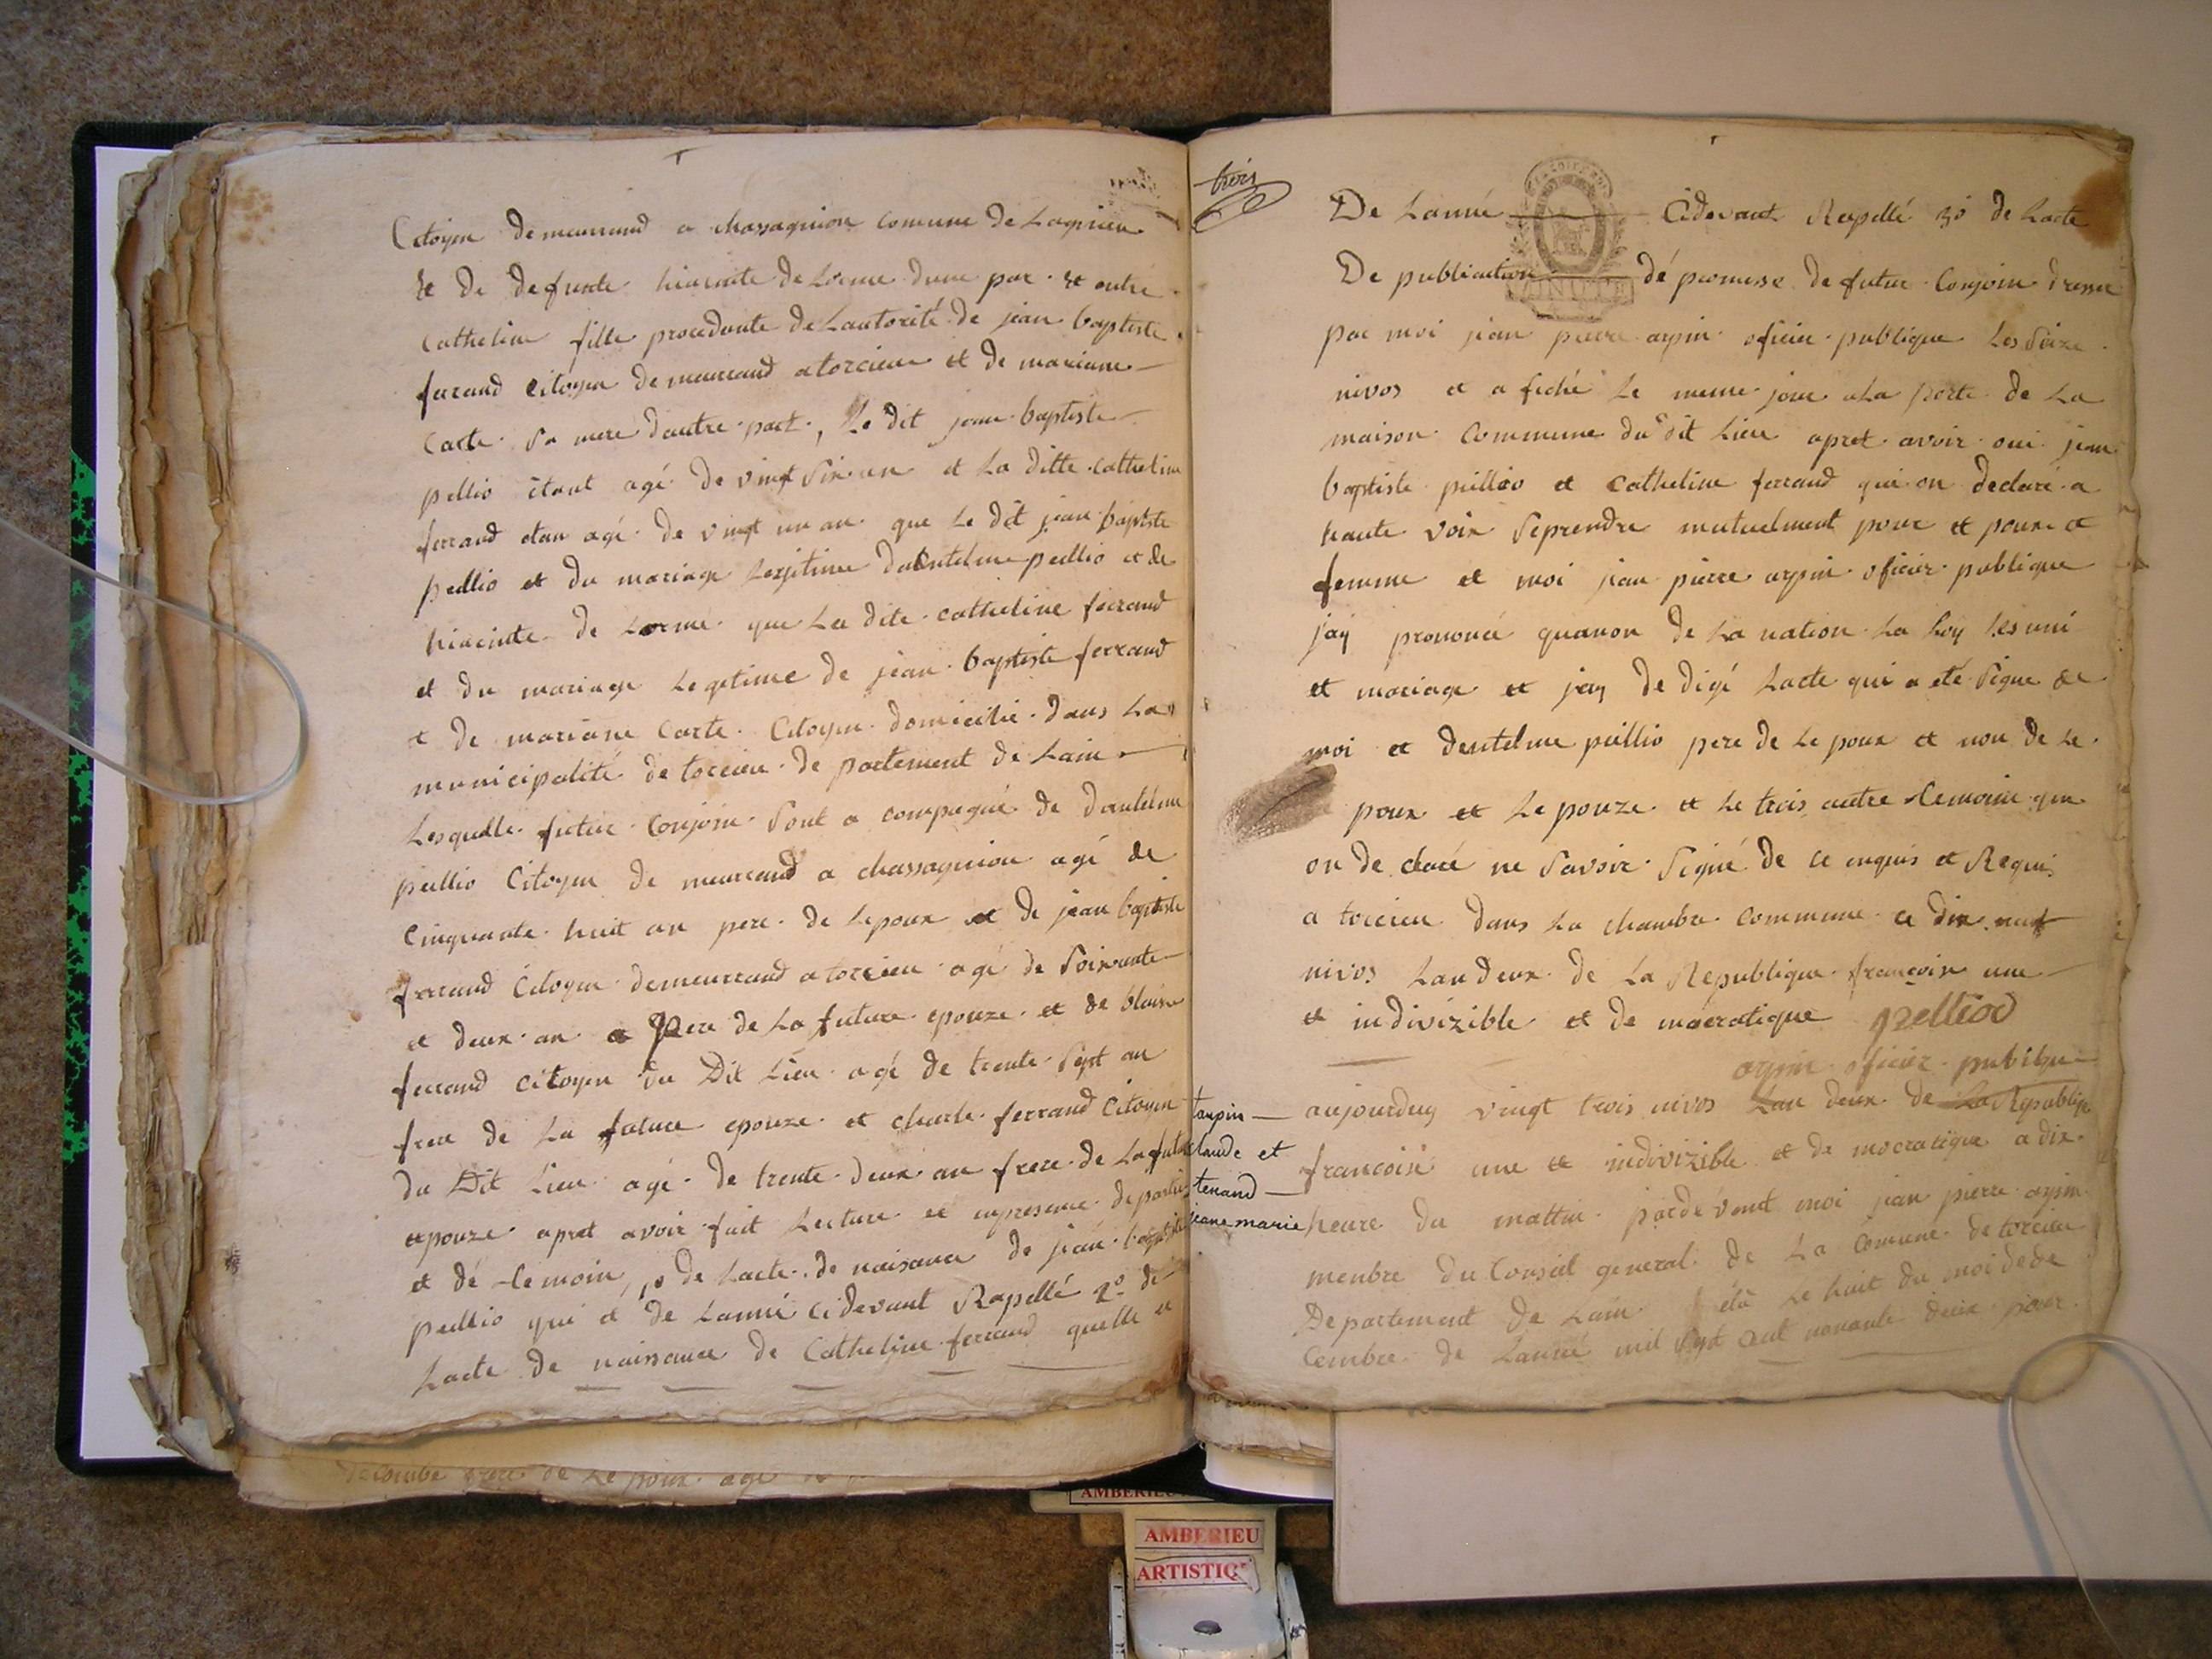 Citoyen demeurand a chassagnion comune de Lagnieu
et de defunte hiacinte de Lorme dune par et outre
catheline fille procedante de Lautorité de jean baptiste
ferrand citoyen demeurand a torcieu et de mariane
carte sa mere dautre part, Le dit jean baptiste
pellio étant agé de vingt six an et La ditte catheline
ferrand etan agé de vingt un an que Le dit jean baptiste
pellio et du mariage Legitime dantelme pellio et de
hiacinte de Lorme que La dite catheline ferrand
et du mariage Legetime de jean baptiste ferrand
et de mariane carte Citoyen domicilié dans La
municipalité de torcieu de partement de Lain
Lesquelle futur Conjoin sont a compagné de dantelme
pellio Citoyen de meurrand a chassagnion agé de
Cinquante huit an pere de Lepoux et de jean baptiste
ferrand Citoyen demeurrand a torcieu agé de soixante
et deux an pere de La future epouze et de blaise
ferrand citoyen du Dit Lieu agé de trente sept an
frere de La future epouze et charle ferrand Citoyen
du Dit Lieu agé de trente deux an frere de La future
epouze apret avoir fait Lecture et en presence de partie
et dé temoin, 1o de Lacte de naisance de jean baptiste
pellio qui et de Lanné cidevant Rapellé 2o de
Lacte de naissance de Catheline ferrand quelle et
decombe frere de Le poux agé
trois
De Lanné Cidevant Rapellé 3o de Lacte
De publication dé promesse de futur Conjoin dressé
par moi jean pierre arpin oficier publique Les seize
nivos et a fiché Le meme jour a La porte de La
maison Commune du dit Lieu apret avoir oui jean
baptiste pellio et Catheline ferrand qui on declaré a
haute voix seprendre mutuelment pour et poux et
femme et moi jean pierre arpin oficier publique
jay prononcé quanon de La nation La Loy Les uni
et mariage et jay de digé Lacte qui a eté signe de
moi et dentelme pellio pere de Le poux et non de Le
poux et Le pouze et Le trois autre temoin qui
on de claré ne savoir signé de ce enquis et Requi
a torcieu dans La chambre commune ce dix neuf
nivos Lan deux de La Republique francoise une
et indivizible et de mocratique pelliod
arpin oficier publique
taupin
claude et
ferrand
jeane marie
aujourduy vingt trois nivos Lan deux de La Republique
francoise une et indivizible et de mocratique a dix
heure du mattin pardevant moi jean pierre arpin
menbre du Conseil general de La comune de torcieu
Departement de Lain élû Le huit du moi dede
cembre de Lanné mil sept cent nonante deux pour
MINUTE
AMBERIEU
ARTISTIQ